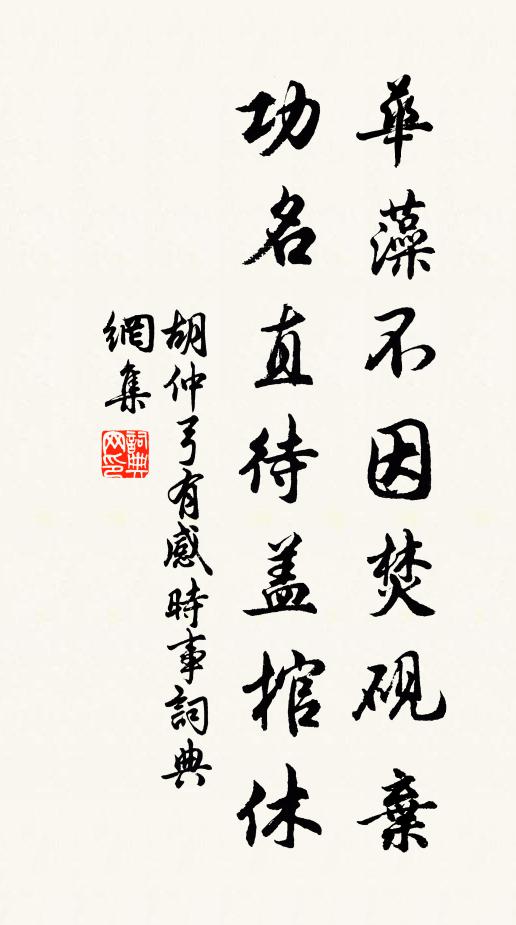 華藻不因焚硯棄
功名直待盖棺休
胡仲弓有感時事詞典
網集
詞典
网印